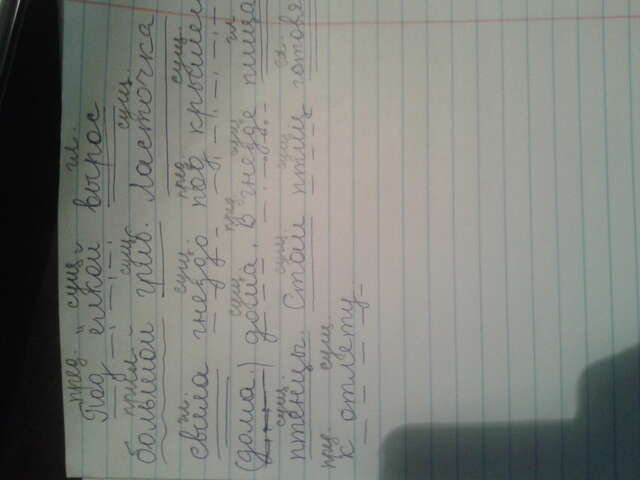 пред. сущ. гл.
Под ёлкой вырос
прил. сущ. сущ.
большой гриб. Ласточка
гл. сущ. пред. сущ.
свила гнездо под крышей
сущ. пред сущ. гл.
(дома) дома. В гнезде пища
сущ. сущ. сущ. гл.
птенцы. Стаи птиц
пред. сущ.
к отлёту.